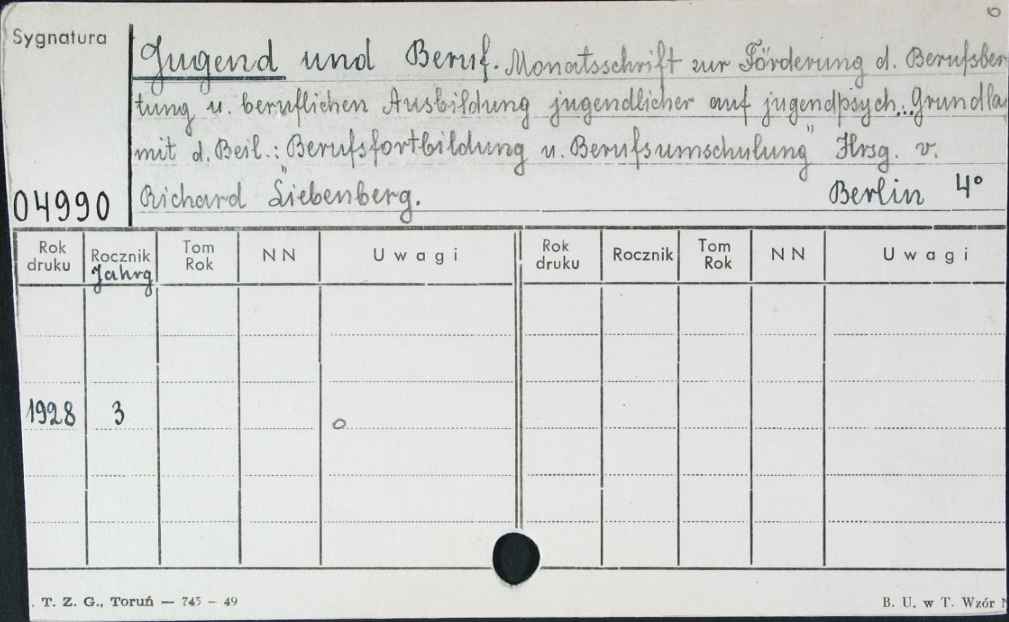 Sygnatura
Jugend und Beruf. Monatsschrift zur Förderung d. Berufsber
tung u. beruflichen Ausbildung jugendlicher auf jugendpsych. Grundla
mit d. Beil.: "Berufsfortbildung u. Berufsumschulung" Hrsg. v.
04990 Richard Liebenberg. Berlin 4°
Rok druku Rocznik Tom Rok NN Uwagi Rok druku Rocznik Tom Rok NN Uwagi
Jahrg
1928 3
. T. Z. G., Toruń — 745 – 49 B. U. w T. Wzór